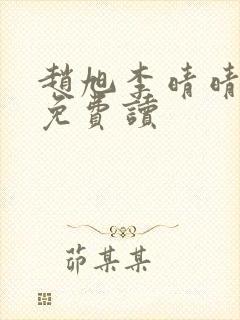 趙旭李晴晴
免費讀
茆某某